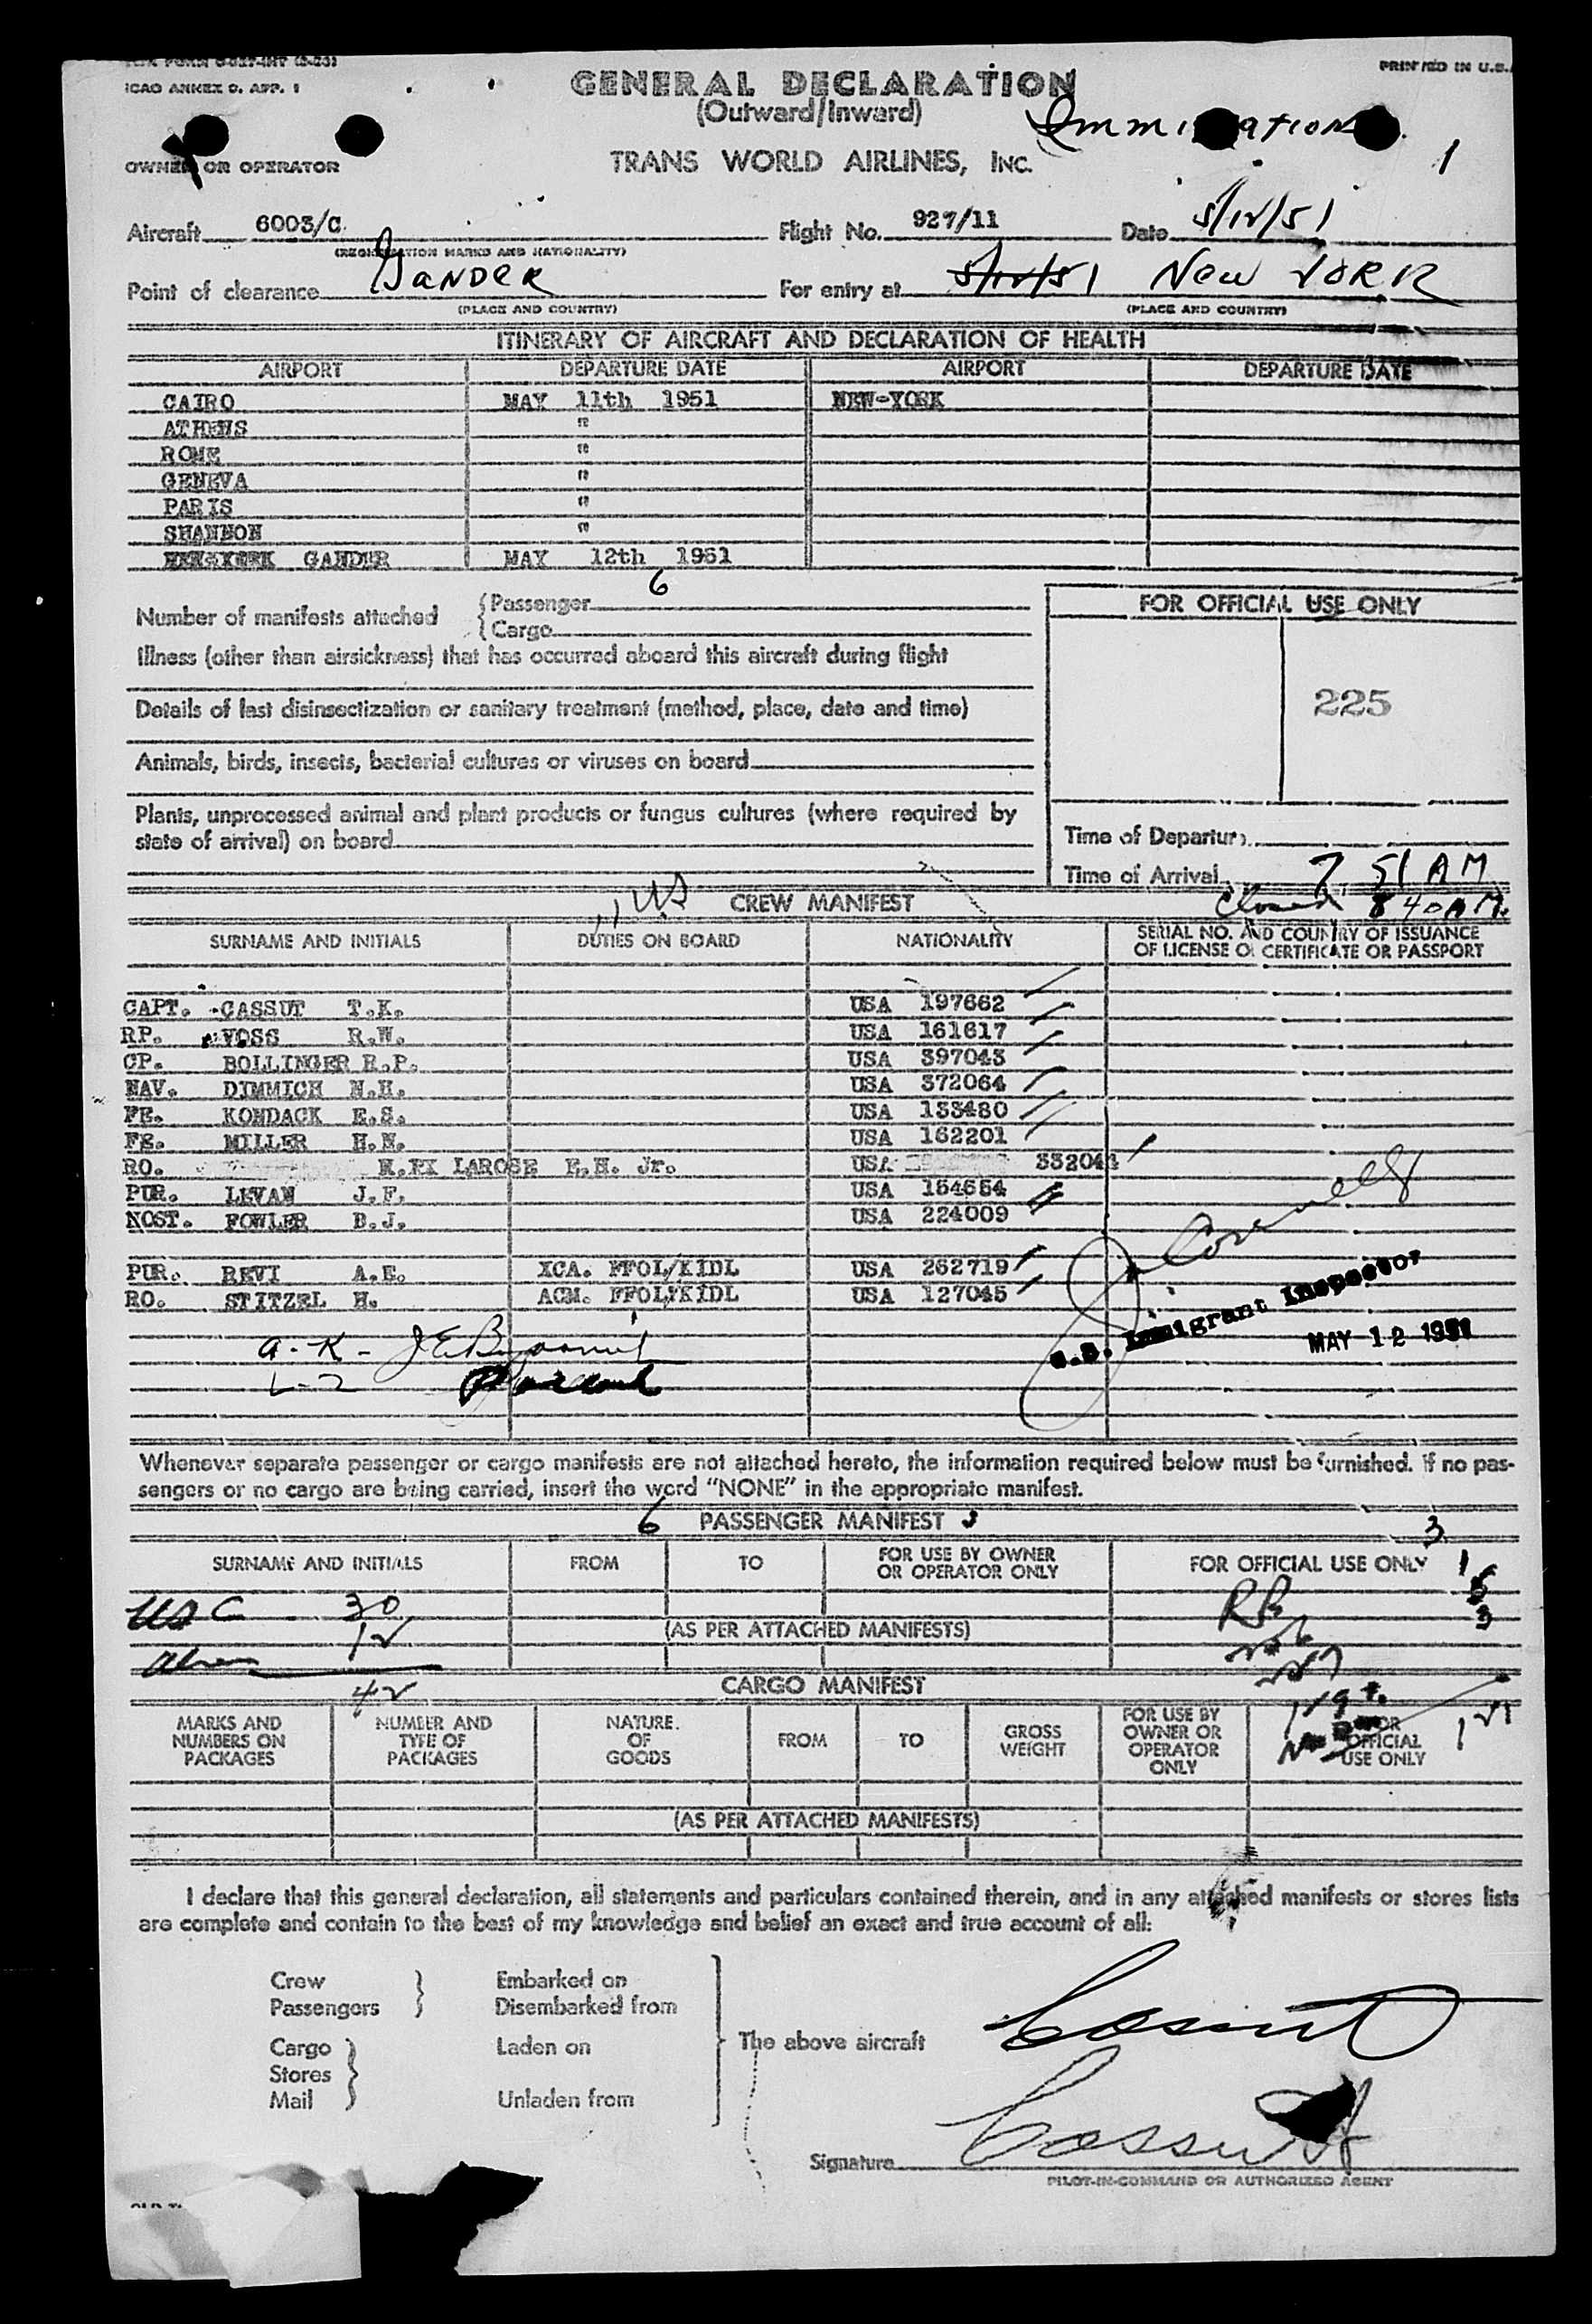 ICAO ANNEX 9. APP. 1
PRINTED IN U.S.
GENERAL DECLARATION
(Outward/Inward)
Immi ation
OWNER OR OPERATOR
TRANS WORLD AIRLINES, INC.
1
Aircraft 6003/C Flight No. 927/11 Date 5/12/51
(REGISTRATION MARKS AND NATIONALITY)
Point of clearance Gander For entry at 5/12/51 New York
(PLACE AND COUNTRY) (PLACE AND COUNTRY)
ITINERARY OF AIRCRAFT AND DECLARATION OF HEALTH
AIRPORT DEPARTURE DATE AIRPORT DEPARTURE DATE
CAIRO MAY 11th 1951 NEW-YORK
ATHENS "
ROME "
GENEVA "
PARIS "
SHANNON "
GANDER MAY 12th 1951
Number of manifests attached {Passenger 6
{Cargo
FOR OFFICIAL USE ONLY
Illness (other than airsickness) that has occurred aboard this aircraft during flight
225
Details of last disinsectization or sanitary treatment (method, place, date and time)
Animals, birds, insects, bacterial cultures or viruses on board
Plants, unprocessed animal and plant products or fungus cultures (where required by
state of arrival) on board
Time of Departure
Time of Arrival 7 51 AM
Closed 8 40 AM.
11 US CREW MANIFEST
SURNAME AND INITIALS DUTIES ON BOARD NATIONALITY SERIAL NO. AND COUNTRY OF ISSUANCE
OF LICENSE OR CERTIFICATE OR PASSPORT
CAPT. CASSUT T.K. USA 197662
RP. VOSS R.W. USA 161617
CP. BOLLINGER R.P. USA 397043
NAV. DIMMICH N.H. USA 372064
FE. KONDACK E.S. USA 133480
FE. MILLER H.N. USA 162201
RO. LAROSE E.H. Jr. USA 332044
PUR. LEVAN J.F. USA 154654
HOST. FOWLER B.J. USA 224009
PUR. REVI A.E. XCA. FFOL/KIDL USA 262719
RO. STITZEL H. ACM. FFOL/KIDL USA 127045
U.S. Immigrant Inspector
MAY 12 1951
A.K.
L-2
Whenever separate passenger or cargo manifests are not attached hereto, the information required below must be furnished. If no pas-
sengers or no cargo are being carried, insert the word "NONE" in the appropriate manifest.
6 PASSENGER MANIFEST 3
SURNAME AND INITIALS FROM TO FOR USE BY OWNER
OR OPERATOR ONLY FOR OFFICIAL USE ONLY
USC 30
Alien 12
(AS PER ATTACHED MANIFESTS)
42
CARGO MANIFEST
MARKS AND
NUMBERS ON
PACKAGES NUMBER AND
TYPE OF
PACKAGES NATURE
OF
GOODS FROM TO GROSS
WEIGHT FOR USE BY
OWNER OR
OPERATOR
ONLY FOR
OFFICIAL
USE ONLY
(AS PER ATTACHED MANIFESTS)
I declare that this general declaration, all statements and particulars contained therein, and in any attached manifests or stores lists
are complete and contain to the best of my knowledge and belief an exact and true account of all:
Crew Embarked on
Passengers Disembarked from
Cargo Laden on The above aircraft Cassut
Stores
Mail Unladen from
Signature Cassutt
PILOT-IN-COMMAND OR AUTHORIZED AGENT